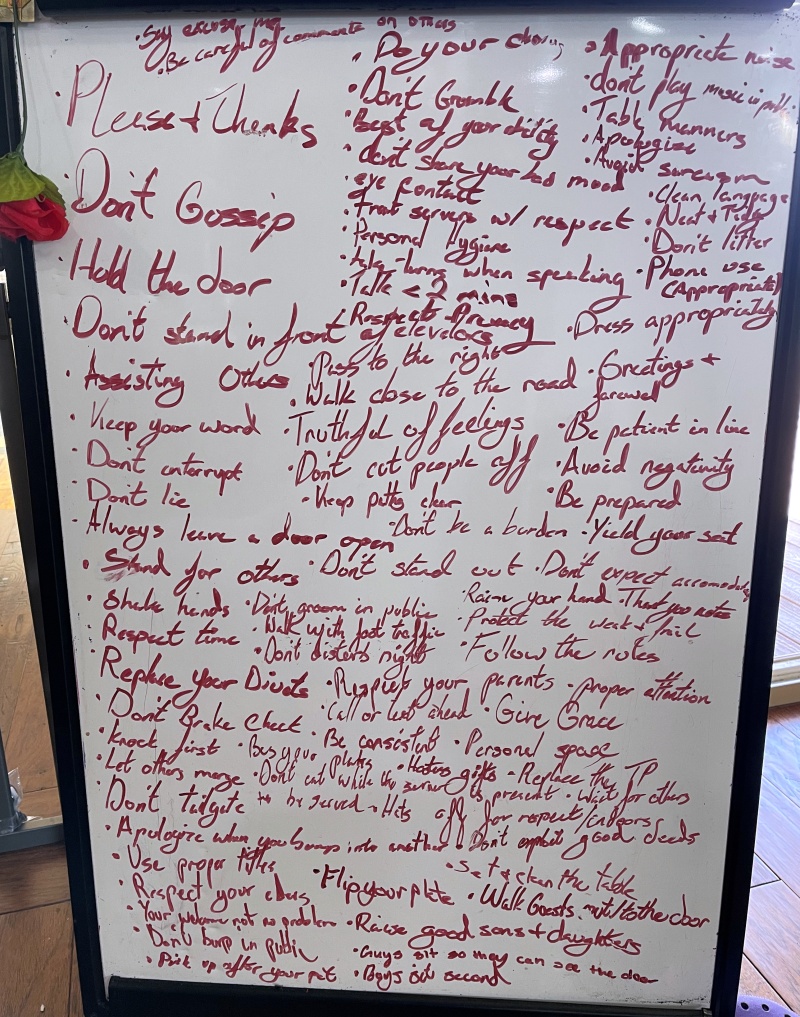 • Say excuse me
• Be careful of comments on others
• Please + Thanks
• Don't Gossip
• Hold the door
• Don't stand in front of elevators
• Do your chores
• Don't Grumble
• Best of your ability
• don't share your bad mood
• eye contact
• Treat servers w/ respect
• Personal Hygiene
• take-turns when speaking
• Talk < 2 mins
Respect Privacy
• Appropriate noise
• don't play music in public
• Table manners
• Apologize
• Avoid sarcasm
• Clean language
• Neat + Tidy
• Don't litter
• Phone use (Appropriate)
• Dress appropriately
• Assisting Others
• Pass to the right
• Walk close to the road
• Greetings + farewell
• Keep your word
• Truthful of feelings
• Be patient in line
• Don't interrupt
• Don't cut people off
• Avoid negativity
• Don't lie
• Keep paths clear
• Be prepared
• Always leave a door open
• Don't be a burden
• Yield your seat
• Stand for others
• Don't stand out
• Don't expect
• Shake hands
• Don't groom in public
Raise your hand
• Thank you notes
• Respect time
• Walk with foot traffic
• Protect the weak + frail
• Don't disturb night
• Follow the rules
• Replace your Divots
• Respect your parents
• proper attention
• Don't Brake Check
• Call or text ahead
• Give Grace
• Knock first
• Bus your plates
• Be consistent
• Personal space
• Let others merge
• Hostess gifts
• Replace the TP
• Don't eat while the server is present
• Wait for others to be served
• Don't tailgate
• Hats off for respect/indoors
• Apologize when you bump into another
• Don't exploit good deeds
• Use proper titles
• Set + clean the table
• Respect your elders
• Flip your plate
• Walk Guests out/to the door
• Your welcome not no problem
• Raise good sons + daughters
• Don't burp in public
• Guys sit so they can see the door
• Pick up after your pet
• Boys sit second